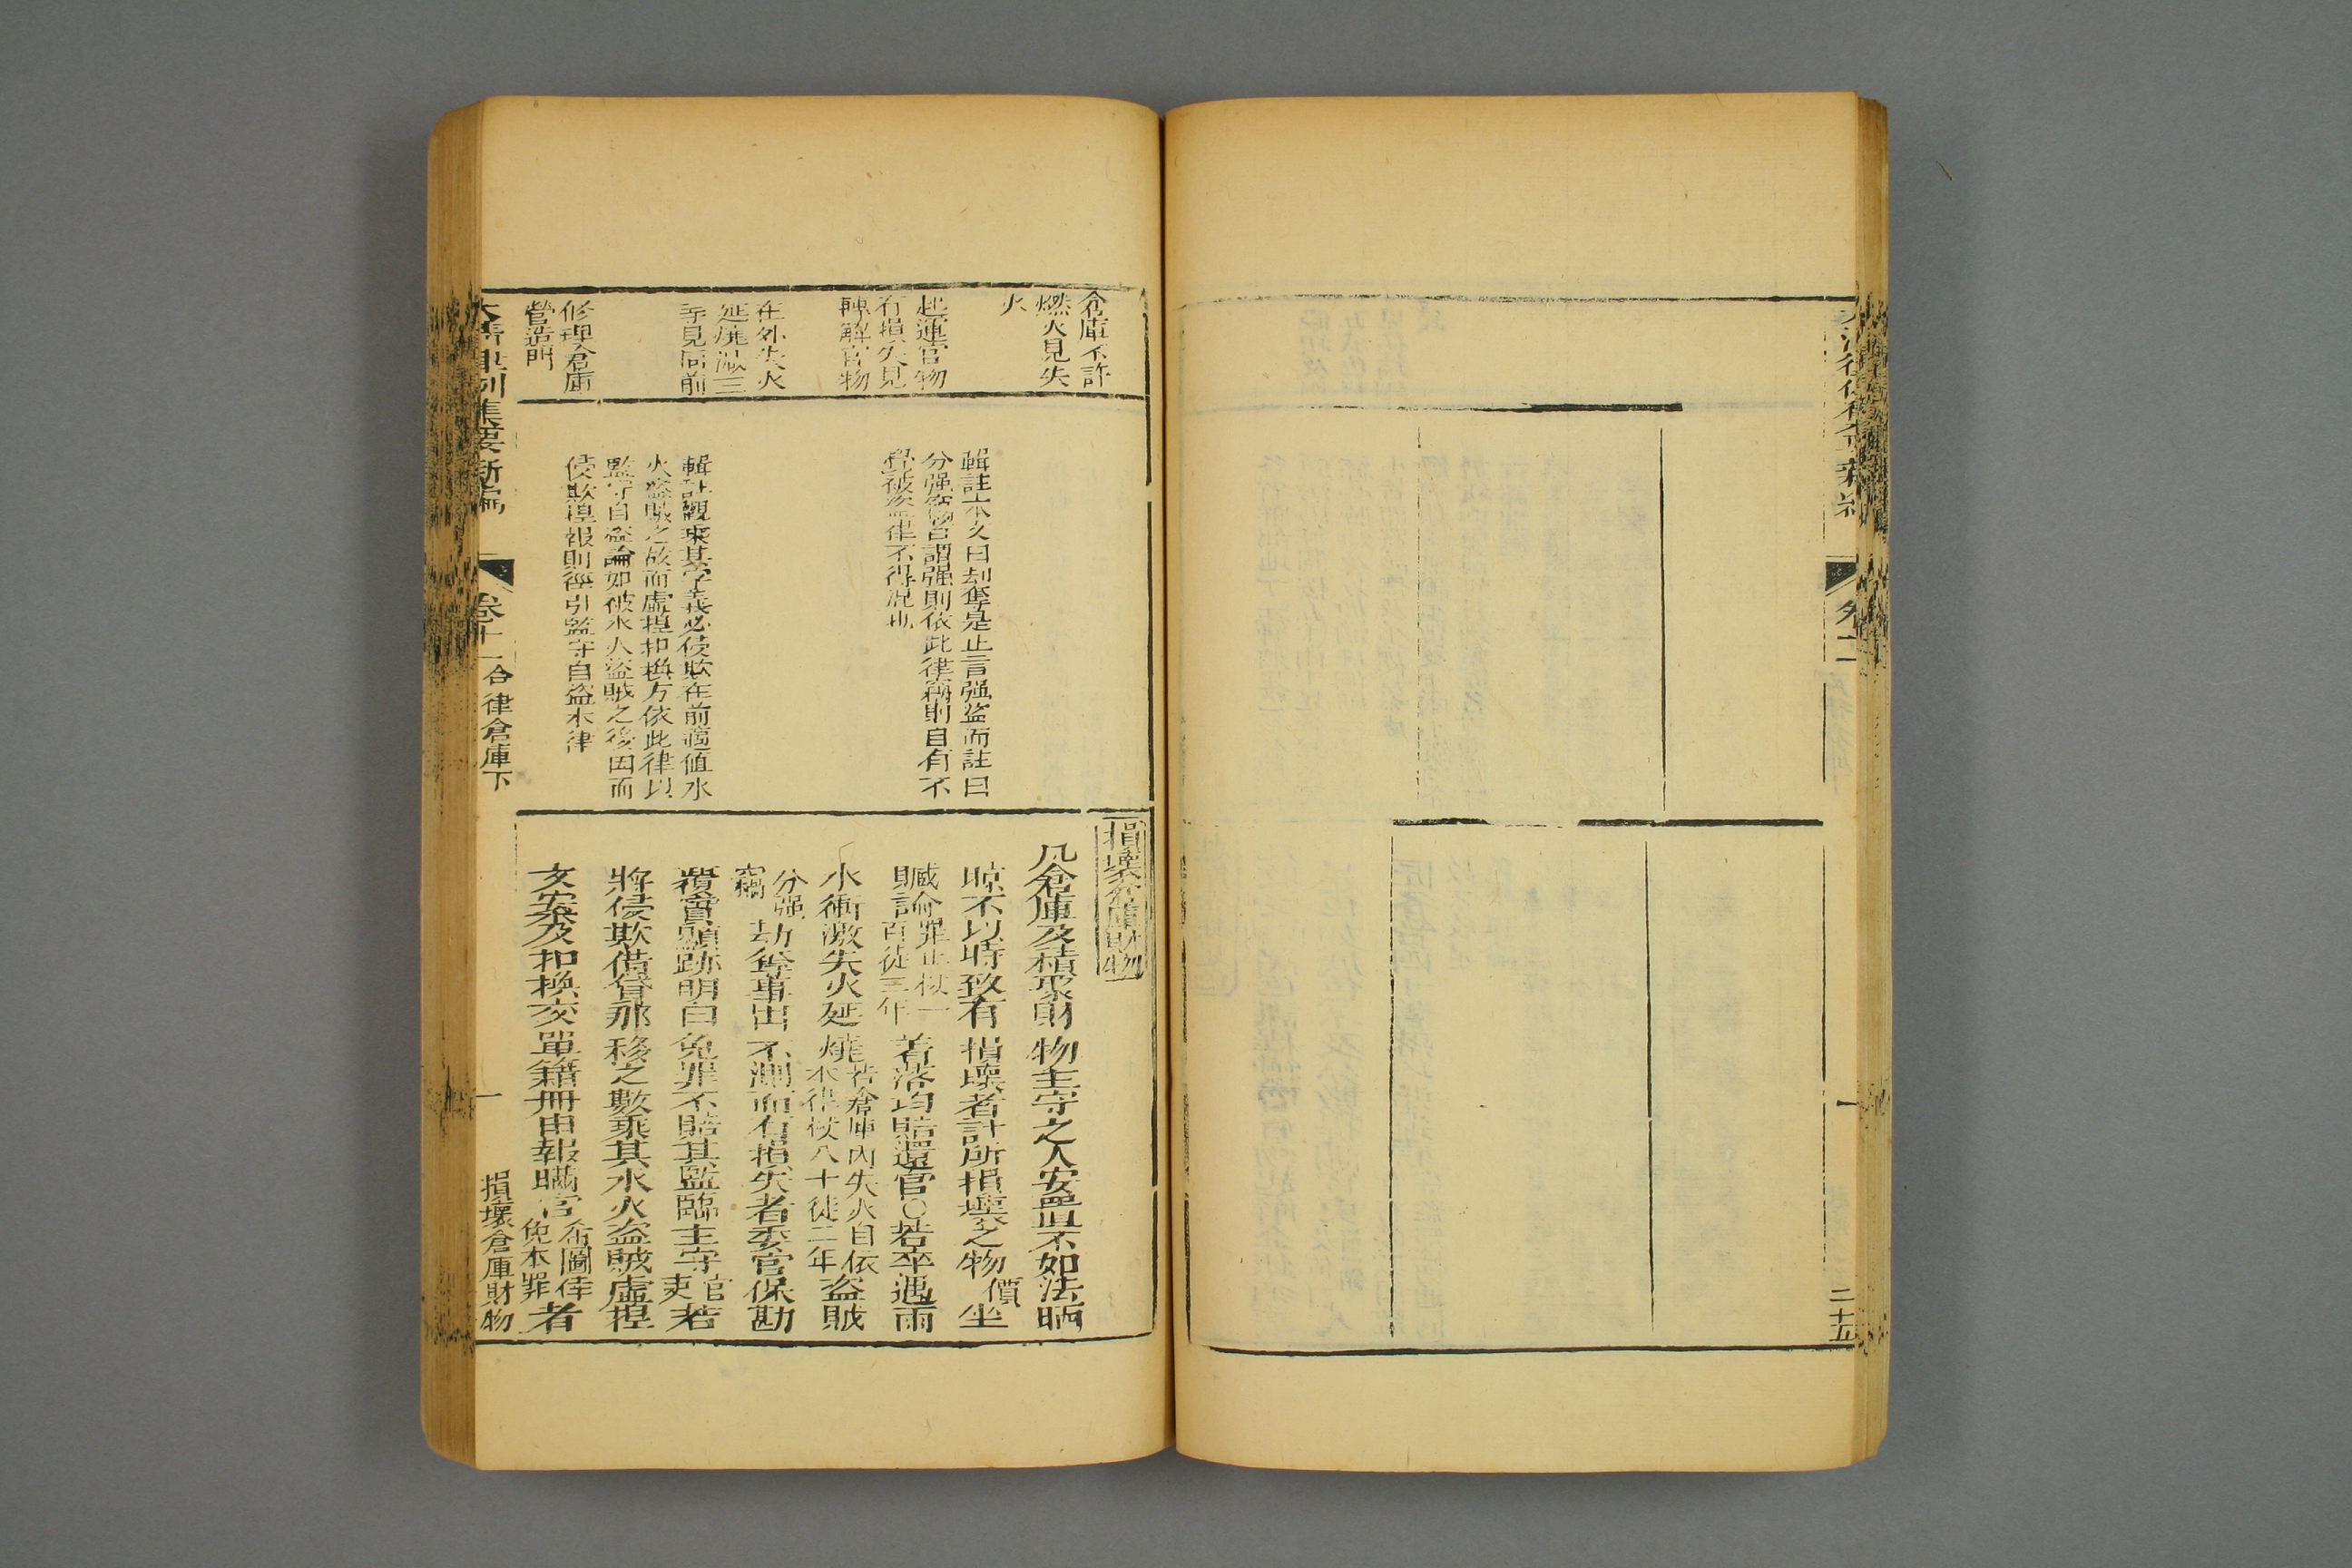 二十五
倉庫不許
燃火見失
火
起運官物
有損失見
轉解官物
在外失火
延燒減三
等見同前
修理倉庫
營造門
輯註本文曰刦奪是止言强盜而註曰
分强竊者謂强則依此律竊則自有不
覺被盜律不得混也
輯註觀乘其字義必侵欺在前適值水
火盜賊之故而虛捏扣換方依此律以
監守自盜論如彼水火盜賊之後因而
侵欺捏報則徑引監守自盜本律
損壞倉庫財物
凡倉庫及積聚財物主守之人安置不如法晒
晾不以時致有損壞者計所損壞之物價坐
贓論罪止杖一百徒三年着落均賠還官○若卒遇雨
水衝激失火延燒若倉庫內失火自依本律杖八十徒二年盜賊
分强竊劫奪事出不測而有損失者委官保勘
覆實顯跡明白免罪不賠其監臨主守官吏若
將侵欺借貸那移之數乘其水火盜賊虛捏
文案及扣換交單籍冊申報瞞官希圖倖免本罪者
大清律例集要新編
卷十一
合律倉庫下
一
損壞倉庫財物